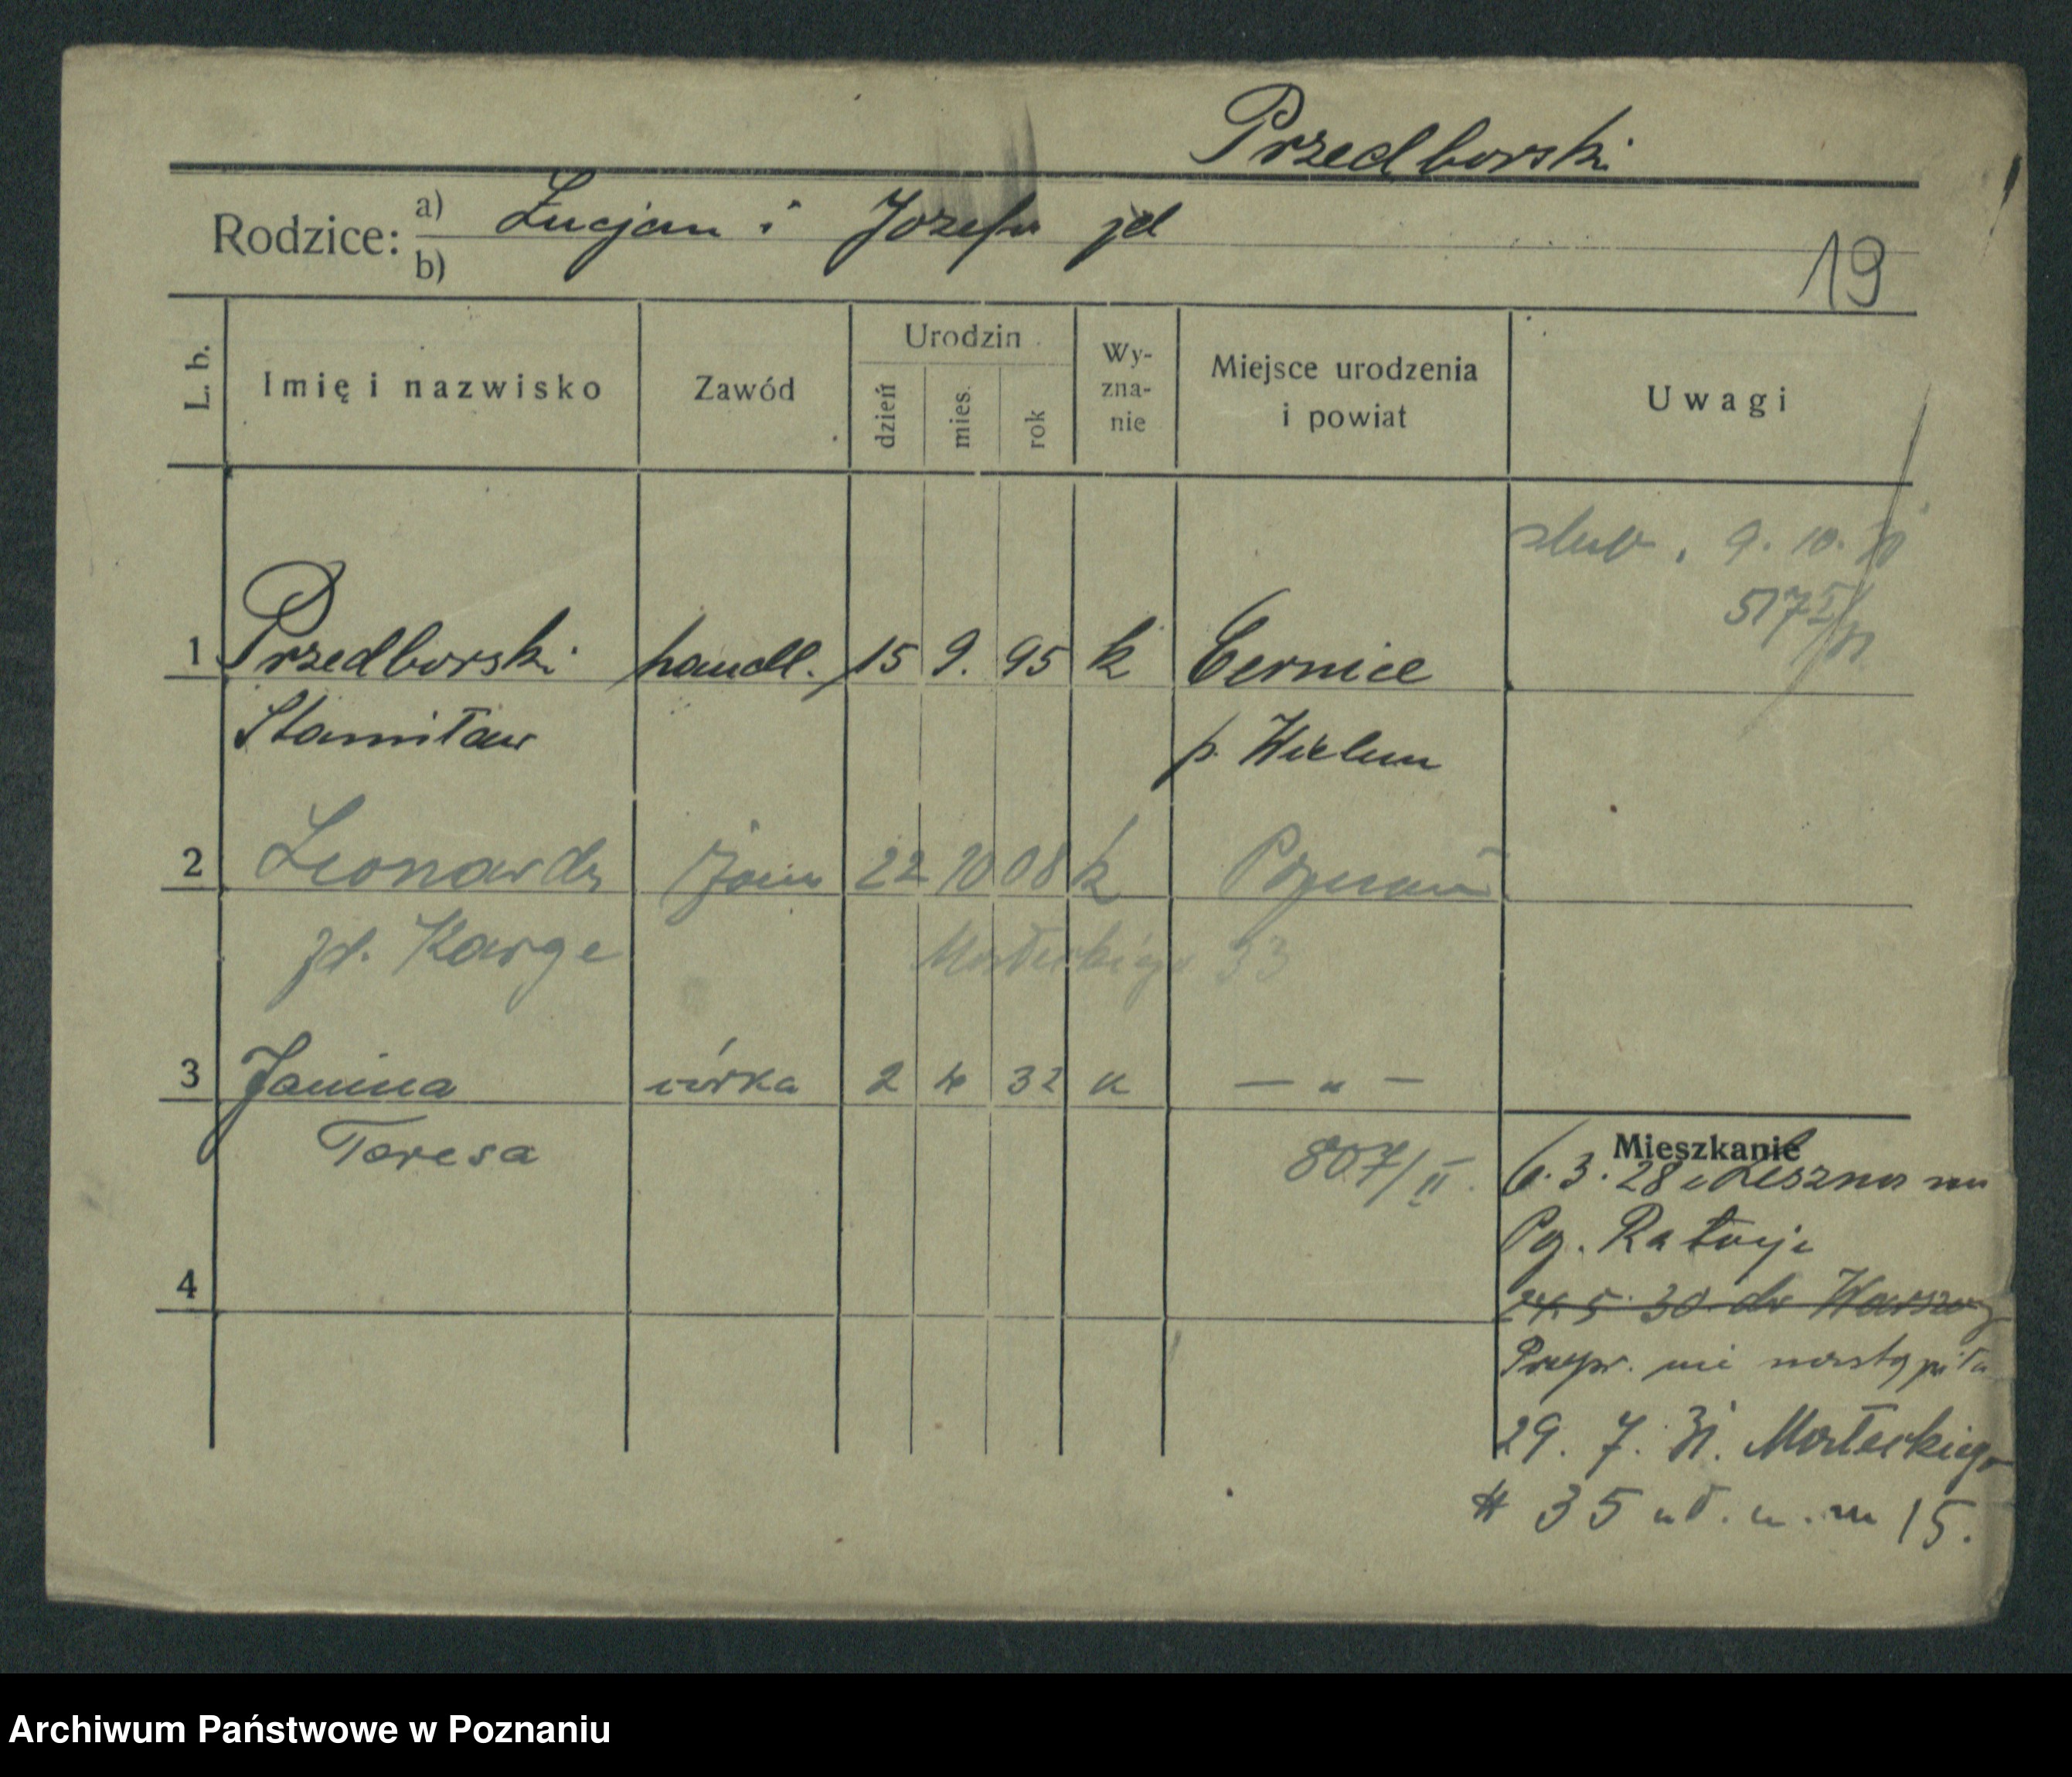 Przedborski
Rodzice: a) Lucjan i Jozefa jd
b)
19
L. b. Imię i nazwisko Zawód Urodzin dzień mies. rok Wy-zna-nie Miejsce urodzenia i powiat Uwagi
slub. 9. 10.
1 Przedborski handl. 15 9. 95 k Cernice
Stanisław p. Wielun
2 Leonarda żona 22 10 08 k Poznań
zd. Karge Małeckiego 33
3 Janina córka 2 4 32 k — „ —
Teresa 807/II.
Mieszkanie
6. 3. 28 z Leszna
Rataje
4
24. 5. 30 do Warszawy
Przepr. nie nastąpiła
29. 7. 31. Małeckiego
35 u. m 15.
Archiwum Państwowe w Poznaniu